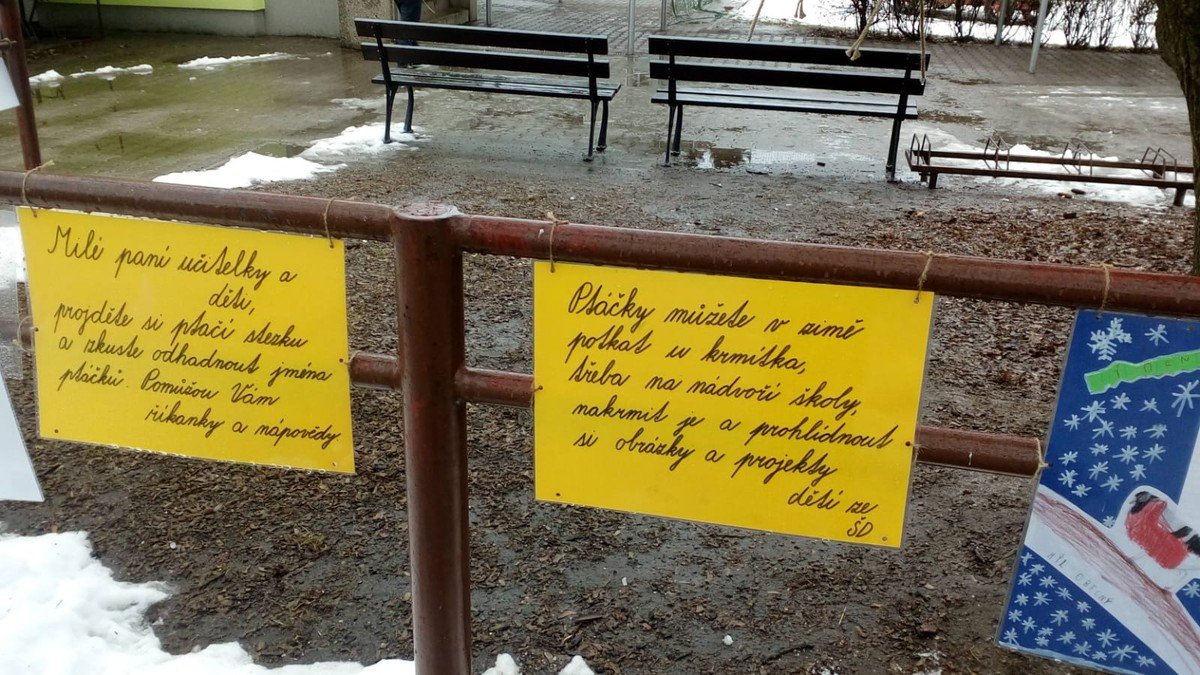 Milé paní učitelky a
děti,
projděte si ptačí stezku
a zkuste odhadnout jména
ptáčků. Pomůžou Vám
říkanky a nápovědy
Ptáčky můžete v zimě
potkat u krmítka,
třeba na nádvoří školy,
nakrmit je a prohlídnout
si obrázky a projekty
dětí ze
ŠD